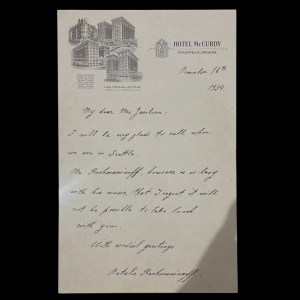 HOTEL McCURDY
EVANSVILLE, INDIANA
November 16th
1930
My dear Mrs Jacobson
I will be very glad to call when
we are in Seattle.
Mr Rachmaninoff, however is so busy
with his music that I regret it will
not be possible to take lunch
with you.
With cordial greetings
Natalie Rachmaninoff